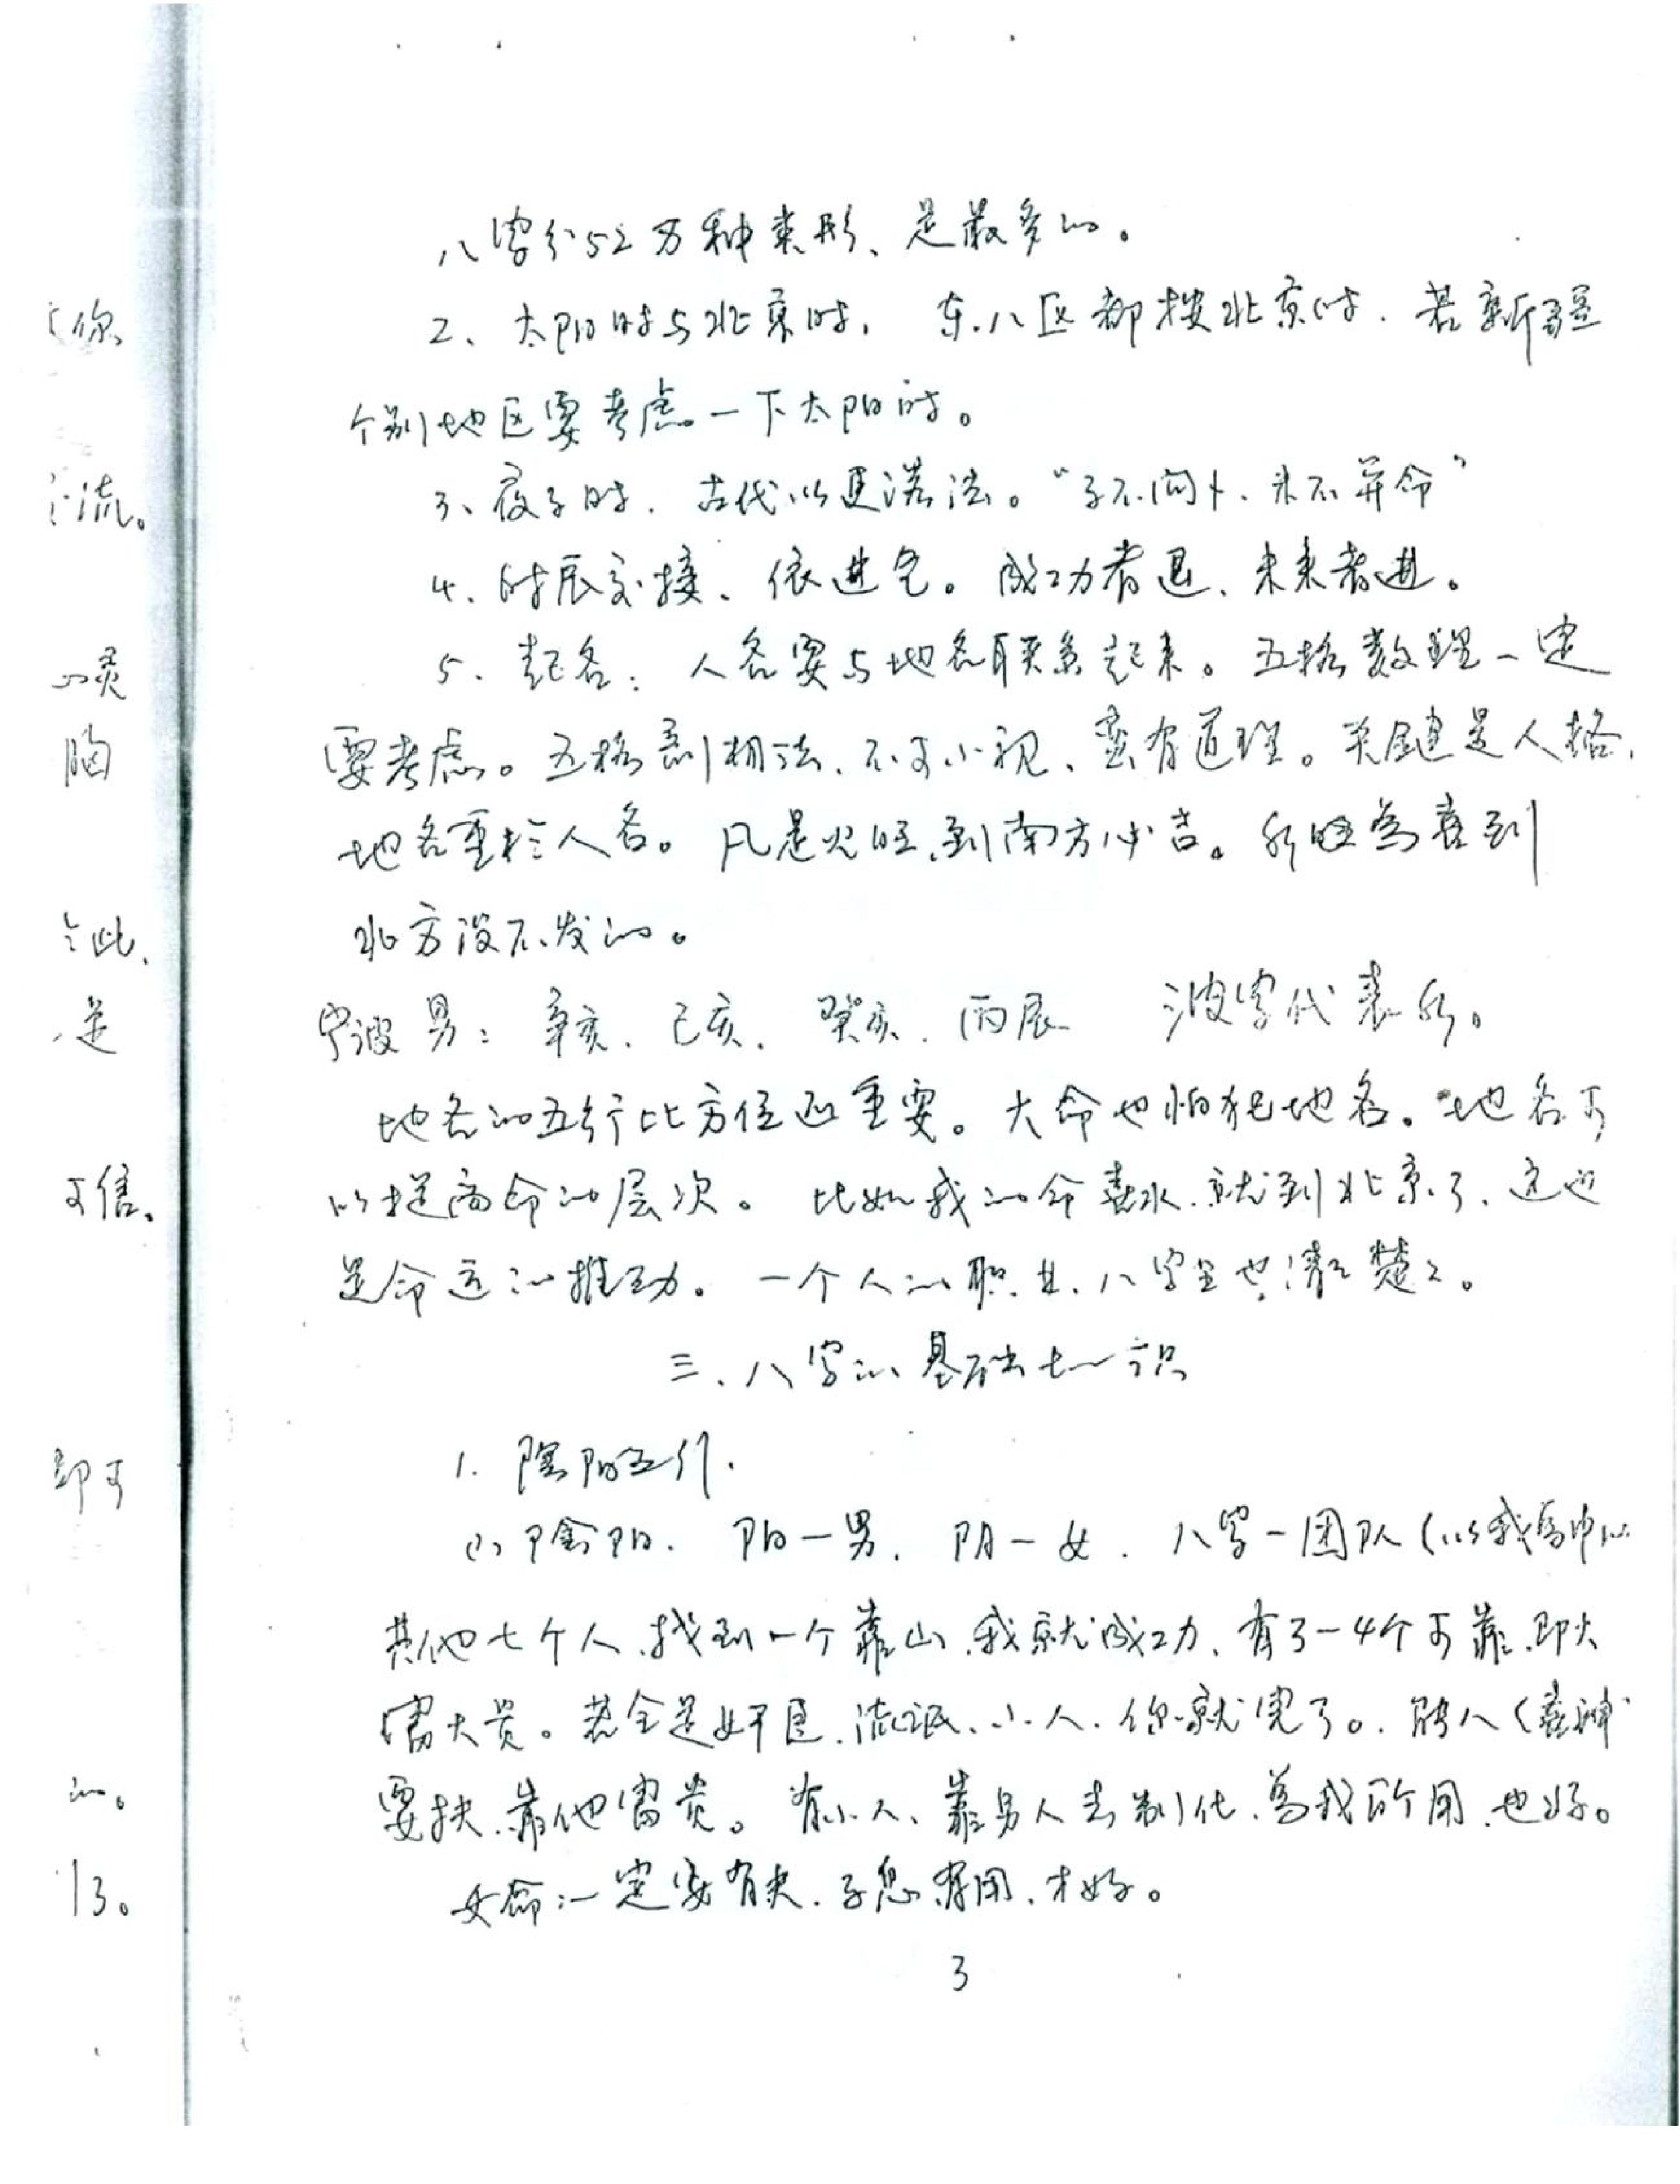 八字分52万种类形、是最多的。
2、太阳时与北京时， 东八区都按北京时．若新疆
个别地区要考虑一下太阳时。
3、夜子时．古代以更漏法。“子不问卜、未不算命”
4、时辰交接、依进气。成功者退、未来者进。
5、起名：人名要与地名联系起来。五格数理一定
要考虑。五格剖相法、不可小视、蛮有道理。关键是人格．
地名重於人名。凡是火旺、到南方必吉。水旺为喜到
北方没不发的。
宁波男：辛亥．己亥．癸亥．丙辰 波字代表水。
地名的五行比方位还重要。大命也怕犯地名。地名可
以提高命的层次。比如我的命喜水．就到北京了、这也
是命运的推动。一个人的职业．八字里也清清楚楚。
三、八字的基础知识
1. 陰阳五行．
(1) 陰阳． 阳一男． 阴一女． 八字一团队（以我為中心
其他七个人、找到一个靠山、我就成功、有3－4个可靠、即大
富大贵。若全是奸臣、流氓、小人、你就完了。 （喜神
要扶、靠他富贵。有小人、靠男人去制化、為我所用、也好。
女命：一定要有夫．子息有用．才好。
3
你
流。
的灵
胸
此．
是
可信。
即可
的。
13。